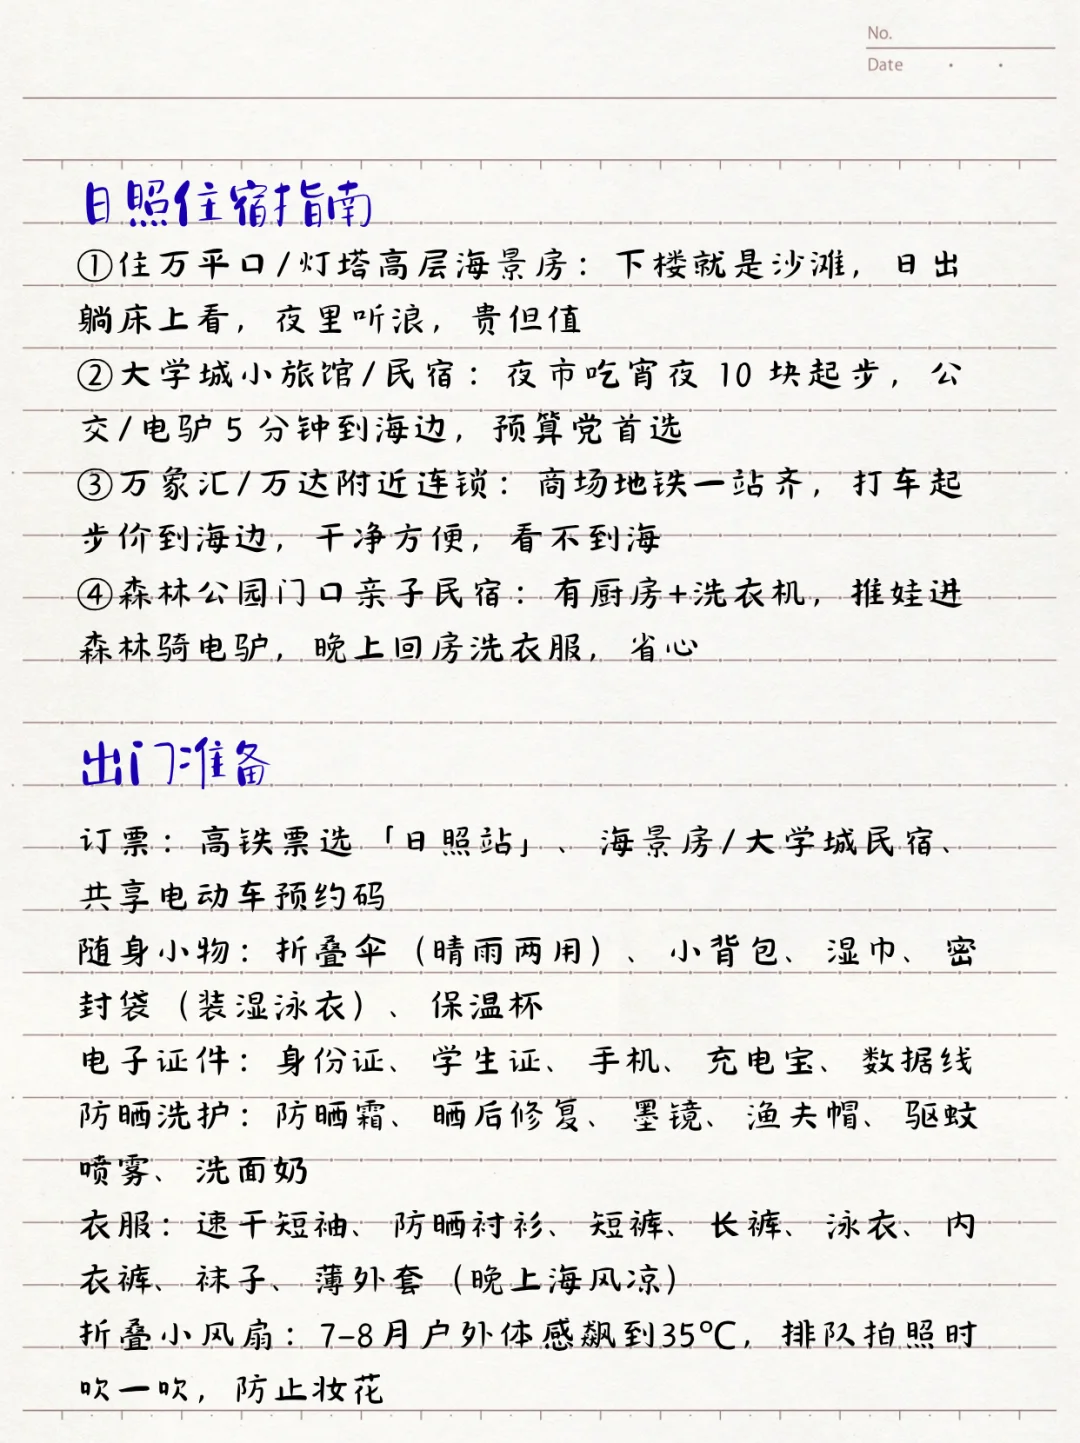 No.
Date
日照住宿指南
①住万平口/灯塔高层海景房：下楼就是沙滩，日出
躺床上看，夜里听浪，贵但值
②大学城小旅馆/民宿：夜市吃宵夜 10 块起步，公
交/电驴 5 分钟到海边，预算党首选
③万象汇/万达附近连锁：商场地铁一站齐，打车起
步价到海边，干净方便，看不到海
④森林公园门口亲子民宿：有厨房+洗衣机，推娃进
森林骑电驴，晚上回房洗衣服，省心
出门准备
订票：高铁票选「日照站」、海景房/大学城民宿、
共享电动车预约码
随身小物：折叠伞（晴雨两用）、小背包、湿巾、密
封袋（装湿泳衣）、保温杯
电子证件：身份证、学生证、手机、充电宝、数据线
防晒洗护：防晒霜、晒后修复、墨镜、渔夫帽、驱蚊
喷雾、洗面奶
衣服：速干短袖、防晒衬衫、短裤、长裤、泳衣、内
衣裤、袜子、薄外套（晚上海风凉）
折叠小风扇：7-8月户外体感飙到35℃，排队拍照时
吹一吹，防止妆花